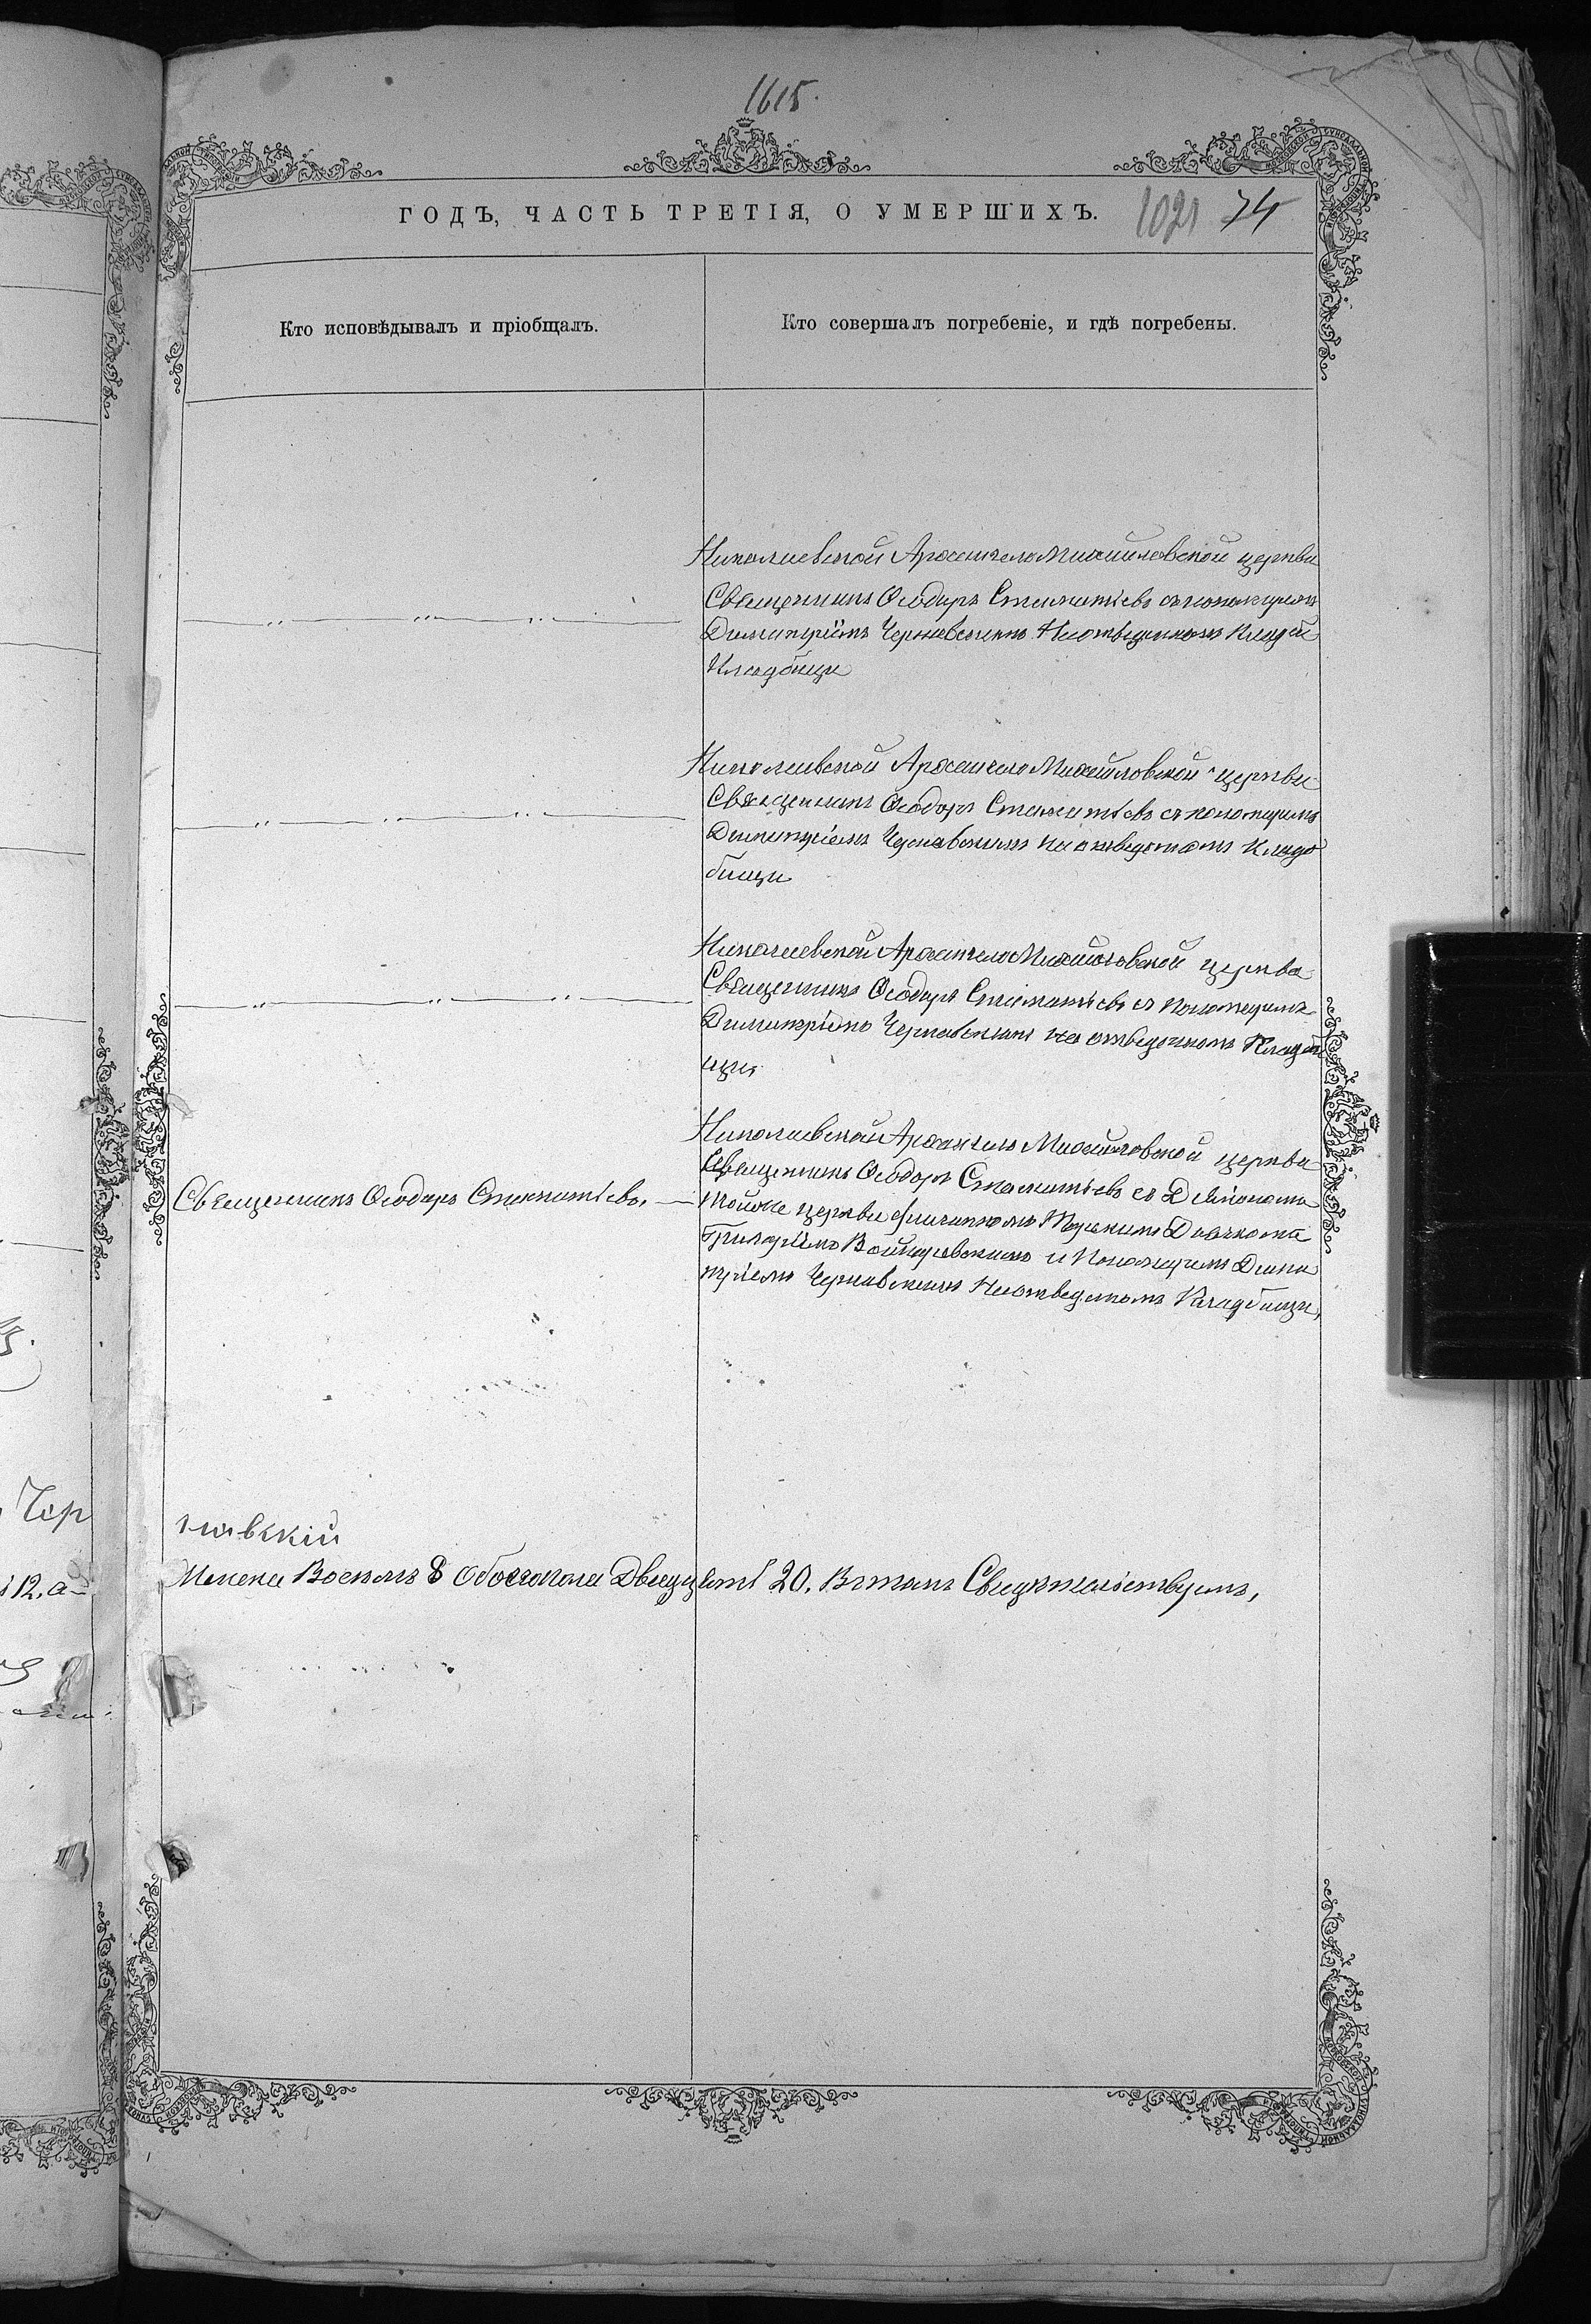 1615.
ГОДЪ, ЧАСТЬ ТРЕТІЯ, О УМЕРШИХЪ.
1021 74
Кто исповѣдывалъ и пріобщалъ.
Кто совершалъ погребеніе, и гдѣ погребены.
Николаевской Архангело Михайловской церкви
Священникъ Ѳеодоръ Стаматіевъ съ пономаремъ
Димитріемъ Чернавскимъ На отведенномъ Кладби
Кладбищи
Николаевской Архангело Михайловской церкви
Священникъ Ѳеодоръ Стаматіевъ съ пономаремъ
Димитріемъ Чернавскимъ на отведеномъ Кладо
бищи
Николаевской Архангело Михайловской церкви
Священникъ Ѳеодоръ Стаматіевъ съ пономаремъ
Димитріемъ Чернавскимъ на отведенномъ Кладби
щи,
Священникъ Ѳеодоръ Стаматіевъ,
Николаевской Архангело Михайловской церкви
Священникъ Ѳеодоръ Стаматіевъ съ Діякономъ
тойже церкви Дьячкомъ
Григоріемъ и Пономаремъ Дими
тріемъ Чернавскимъ На отведеномъ Кладбищи,
Чер
навскій
12, а
Женска Восемь 8 Обоегопола Двадцать 20, Въ томъ Свидѣтельствуемъ,